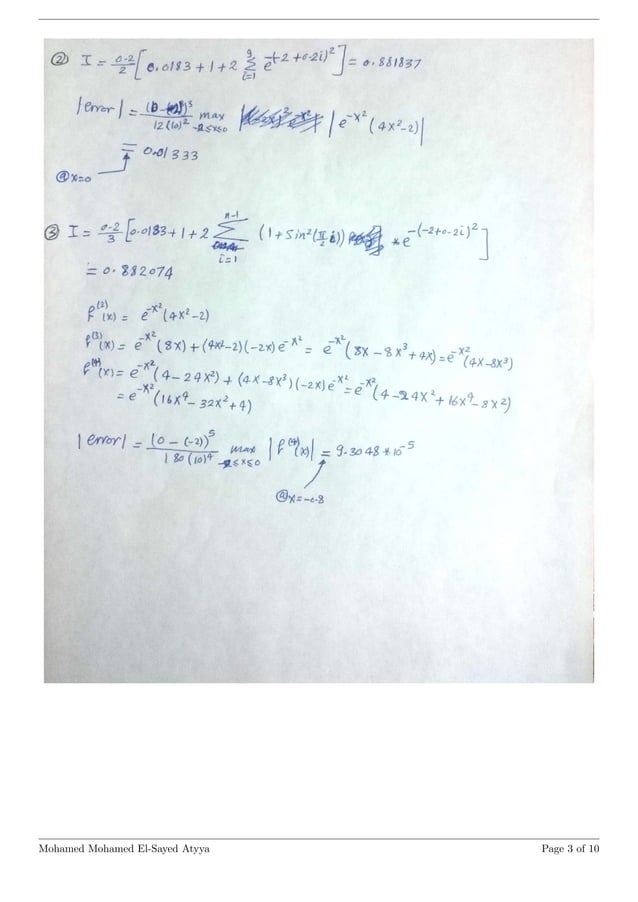 ② I = 0.2/2 [0.0183 + 1 + 2 9Σi=1 e^-(-2+0.2i)^2] = 0.881837
|error| = 12(10)^2 max -2≤x≤0 |e^-x^2 (4x^2-2)|
= 0.01333
@x=0
③ I = 0.2/3 [0.0183 + 1 + 2 n-1Σi=1 (1+sin^2(π/2 i)) * e^-(-2+0.2i)^2]
= 0.882074
f^(2)(x) = e^-x^2 (4x^2-2)
f^(3)(x) = e^-x^2 (8x) + (4x^2-2)(-2x)e^-x^2 = e^-x^2 (8x - 8x^3 + 4x) = e^-x^2 (4x-8x^3)
f^(4)(x) = e^-x^2 (4-24x^2) + (4x-8x^3)(-2x)e^-x^2 = e^-x^2 (4-24x^2+16x^4-8x^2)
= e^-x^2 (16x^4-32x^2+4)
|error| = (0-(-2))^5/180(10)^4 max -2≤x≤0 |f^(4)(x)| = 9.3048*10^-5
@x=-0.8
Mohamed Mohamed El-Sayed Atyya Page 3 of 10